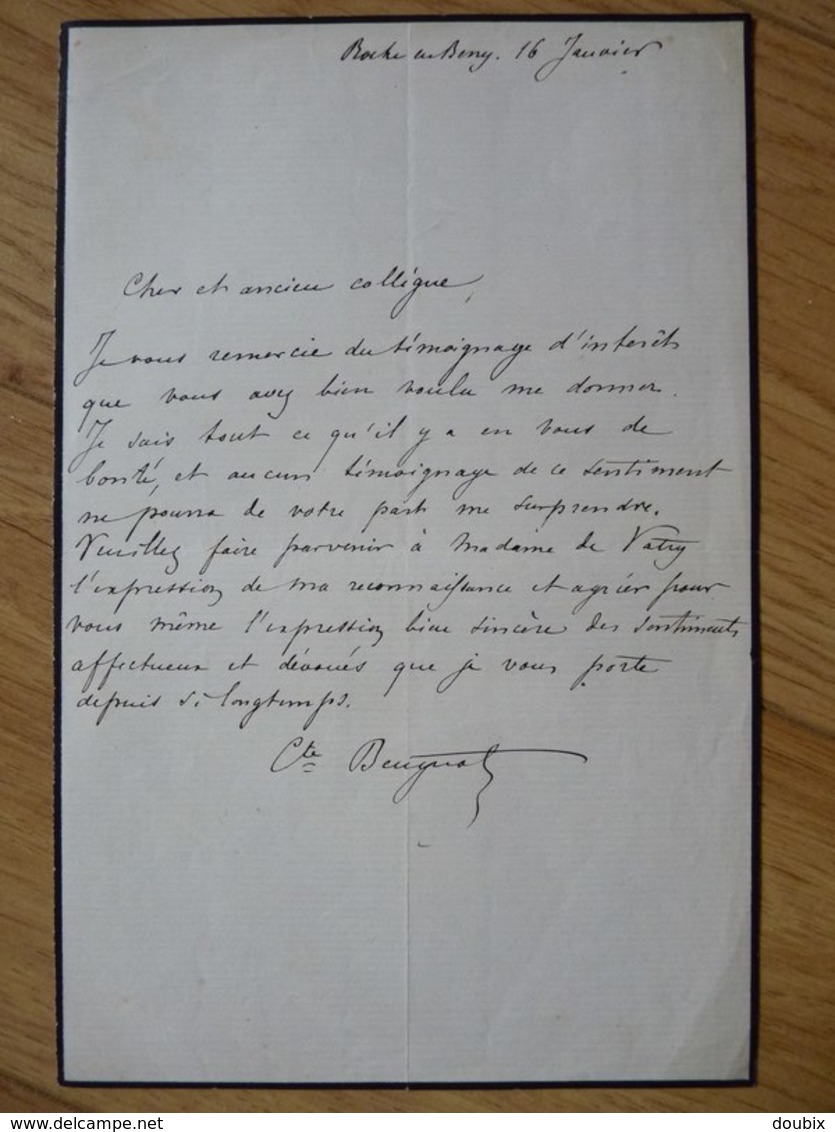 Roche en Breny. 16 Janvier
Cher et ancien collègue,
Je vous remercie du témoignage d'intérêt
que vous avez bien voulu me donner.
Je sais tout ce qu'il y a en vous de
bonté, et aucun témoignage de ce sentiment
ne pourra de votre part me surprendre.
Veuillez faire parvenir à Madame de Vatry
l'expression de ma reconnaissance et agréer pour
vous même l'expression bien sincère des sentiments
affectueux et dévoués que je vous porte
depuis si longtemps.
Cte Beugnot
delcampe.net
doubix